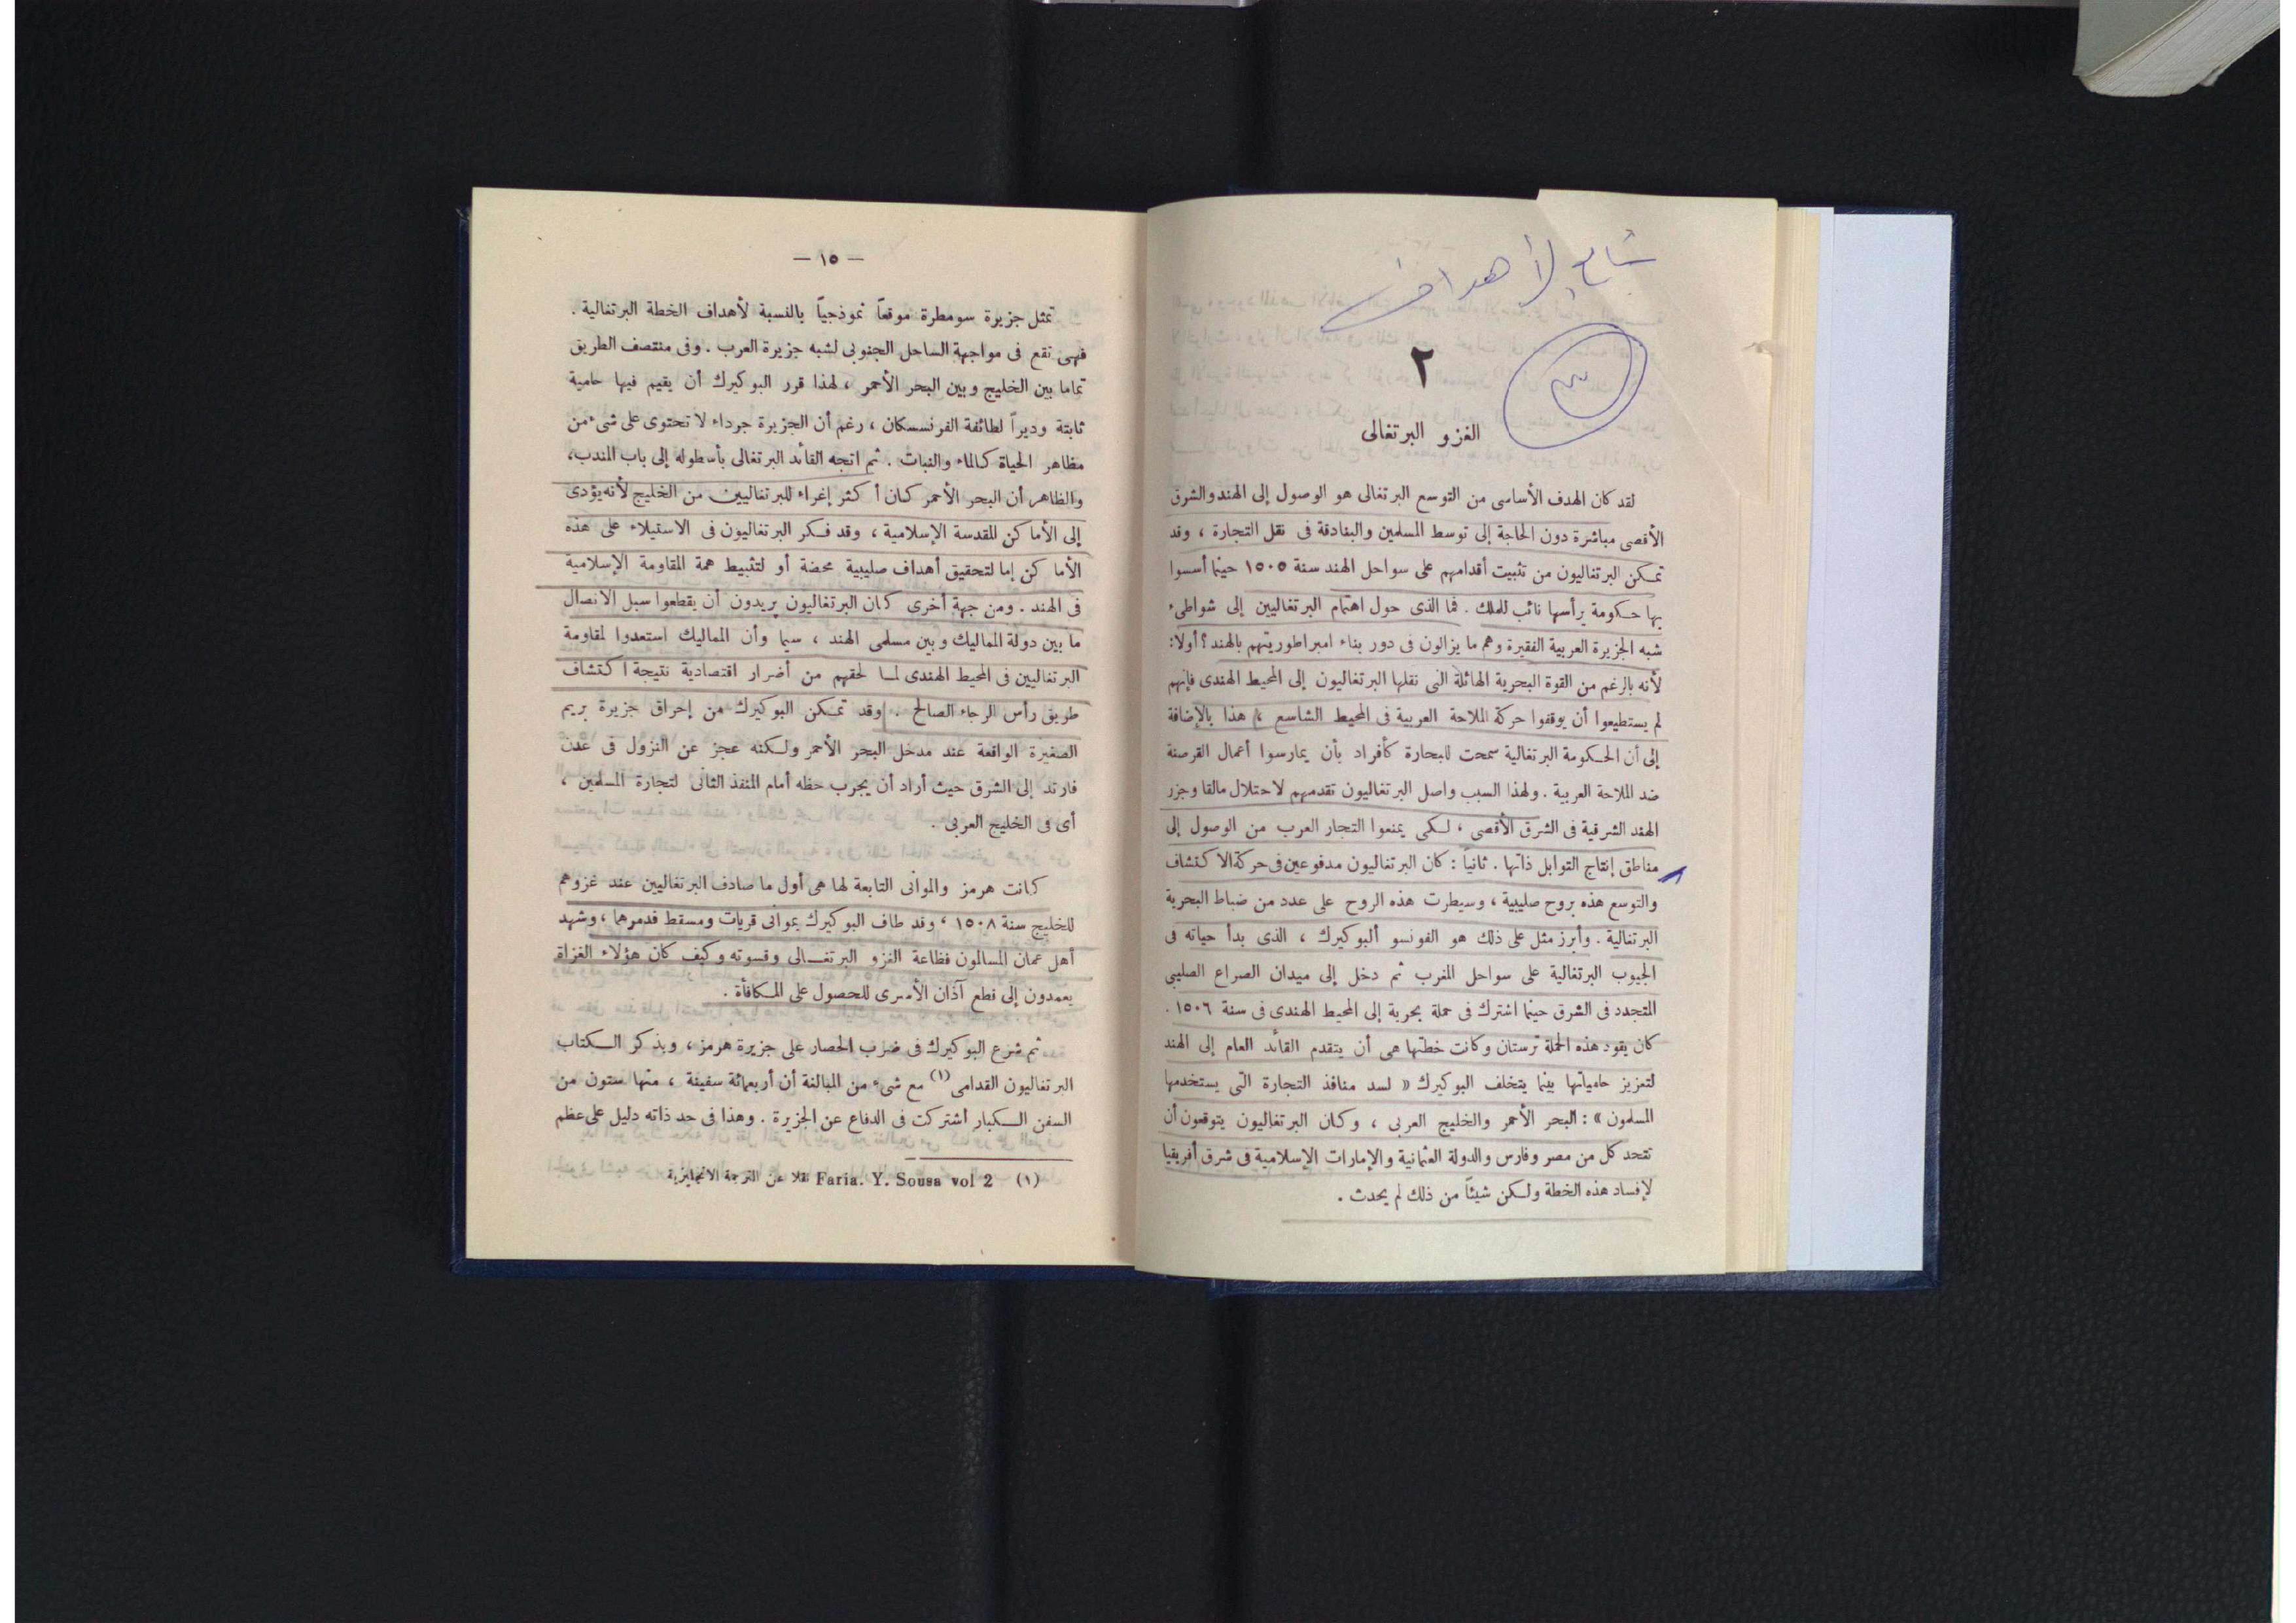 ٢
الغزو البرتغالى
لقد كان الهدف الأساسى من التوسع البرتغالى هو الوصول إلى الهند والشرق
الأقصى مباشرة دون الحاجة إلى توسط المسلمين والبنادقة فى نقل التجارة ، وقد
تمكن البرتغاليون من تثبيت أقدامهم على سواحل الهند سنة ١٥٠٥ حينما أسسوا
بها حكومة يرأسها نائب للملك . فما الذى حول اهتمام البرتغاليين إلى شواطىء
شبه الجزيرة العربية الفقيرة وهم ما يزالون فى دور بناء امبراطوريتهم بالهند ؟ أولا:
لأنه بالرغم من القوة البحرية الهائلة التى نقلها البرتغاليون إلى المحيط الهندى فإنهم
لم يستطيعوا أن يوقفوا حركة الملاحة العربية فى المحيط الشاسع ، هذا بالإضافة
إلى أن الحكومة البرتغالية سمحت للبحارة كأفراد بأن يمارسوا أعمال القرصنة
ضد الملاحة العربية . ولهذا السبب واصل البرتغاليون تقدمهم لاحتلال مالقا وجزر
الهند الشرقية فى الشرق الأقصى ، لكى يمنعوا التجار العرب من الوصول إلى
مناطق إنتاج التوابل ذاتها . ثانياً : كان البرتغاليون مدفوعين فى حركة الاكتشاف
والتوسع هذه بروح صليبية ، وسيطرت هذه الروح على عدد من ضباط البحرية
البرتغالية . وأبرز مثل على ذلك هو الفونسو ألبوكيرك ، الذى بدأ حياته فى
الجيوب البرتغالية على سواحل المغرب ثم دخل إلى ميدان الصراع الصليبى
المتجدد فى الشرق حينما اشترك فى حملة بحرية إلى المحيط الهندى فى سنة ١٥٠٦ .
كان يقود هذه الحملة ترستان وكانت خطتها هى أن يتقدم القائد العام إلى الهند
لتعزيز حامياتها بينما يتخلف البوكيرك « لسد منافذ التجارة التى يستخدمها
المسلمون » : البحر الأحمر والخليج العربى ، وكان البرتغاليون يتوقعون أن
تتحد كل من مصر وفارس والدولة العثمانية والإمارات الإسلامية فى شرق أفريقيا
لإفساد هذه الخطة ولكن شيئاً من ذلك لم يحدث .
— ١٥ —
تمثل جزيرة سومطرة موقعاً نموذجياً بالنسبة لأهداف الخطة البرتغالية .
فهى تقع فى مواجهة الساحل الجنوبى لشبه جزيرة العرب . وفى منتصف الطريق
تماما بين الخليج وبين البحر الأحمر ، لهذا قرر البوكيرك أن يقيم فيها حامية
ثابتة وديراً لطائفة الفرنسسكان ، رغم أن الجزيرة جرداء لا تحتوى على شىء من
مظاهر الحياة كالماء والنبات . ثم اتجه القائد البرتغالى بأسطوله إلى باب المندب،
والظاهر أن البحر الأحمر كان أكثر إغراء للبرتغاليين من الخليج لأنه يؤدى
إلى الأماكن المقدسة الإسلامية ، وقد فكر البرتغاليون فى الاستيلاء على هذه
الأماكن إما لتحقيق أهداف صليبية محضة أو لتثبيط همة المقاومة الإسلامية
فى الهند . ومن جهة أخرى كان البرتغاليون يريدون أن يقطعوا سبل الاتصال
ما بين دولة المماليك وبين مسلمى الهند ، سيما وأن المماليك استعدوا لمقاومة
البرتغاليين فى المحيط الهندى لما لحقهم من أضرار اقتصادية نتيجة اكتشاف
طريق رأس الرجاء الصالح . وقد تمكن البوكيرك من إحراق جزيرة بريم
الصغيرة الواقعة عند مدخل البحر الأحمر ولكنه عجز عن النزول فى عدن
فارتد إلى الشرق حيث أراد أن يجرب حظه أمام المنفذ الثانى لتجارة المسلمين ،
أى فى الخليج العربى .
كانت هرمز والموانى التابعة لها هى أول ما صادف البرتغاليين عند غزوهم
للخليج سنة ١٥٠٨ ، وقد طاف البوكيرك بموانى قريات ومسقط فدمرهما ، وشهد
أهل عمان المسالمون فظاعة الغزو البرتغالى وقسوته وكيف كان هؤلاء الغزاة
يعمدون إلى قطع آذان الأسرى للحصول على المكافأة .
ثم شرع البوكيرك فى ضرب الحصار على جزيرة هرمز ، ويذكر الكتاب
البرتغاليون القدامى (١) مع شىء من المبالغة أن أربعمائة سفينة ، منها ستون من
السفن الكبار اشتركت فى الدفاع عن الجزيرة . وهذا فى حد ذاته دليل على عظم
(١) Faria. Y. Sousa vol 2 نقلا عن الترجمة الانجليزية